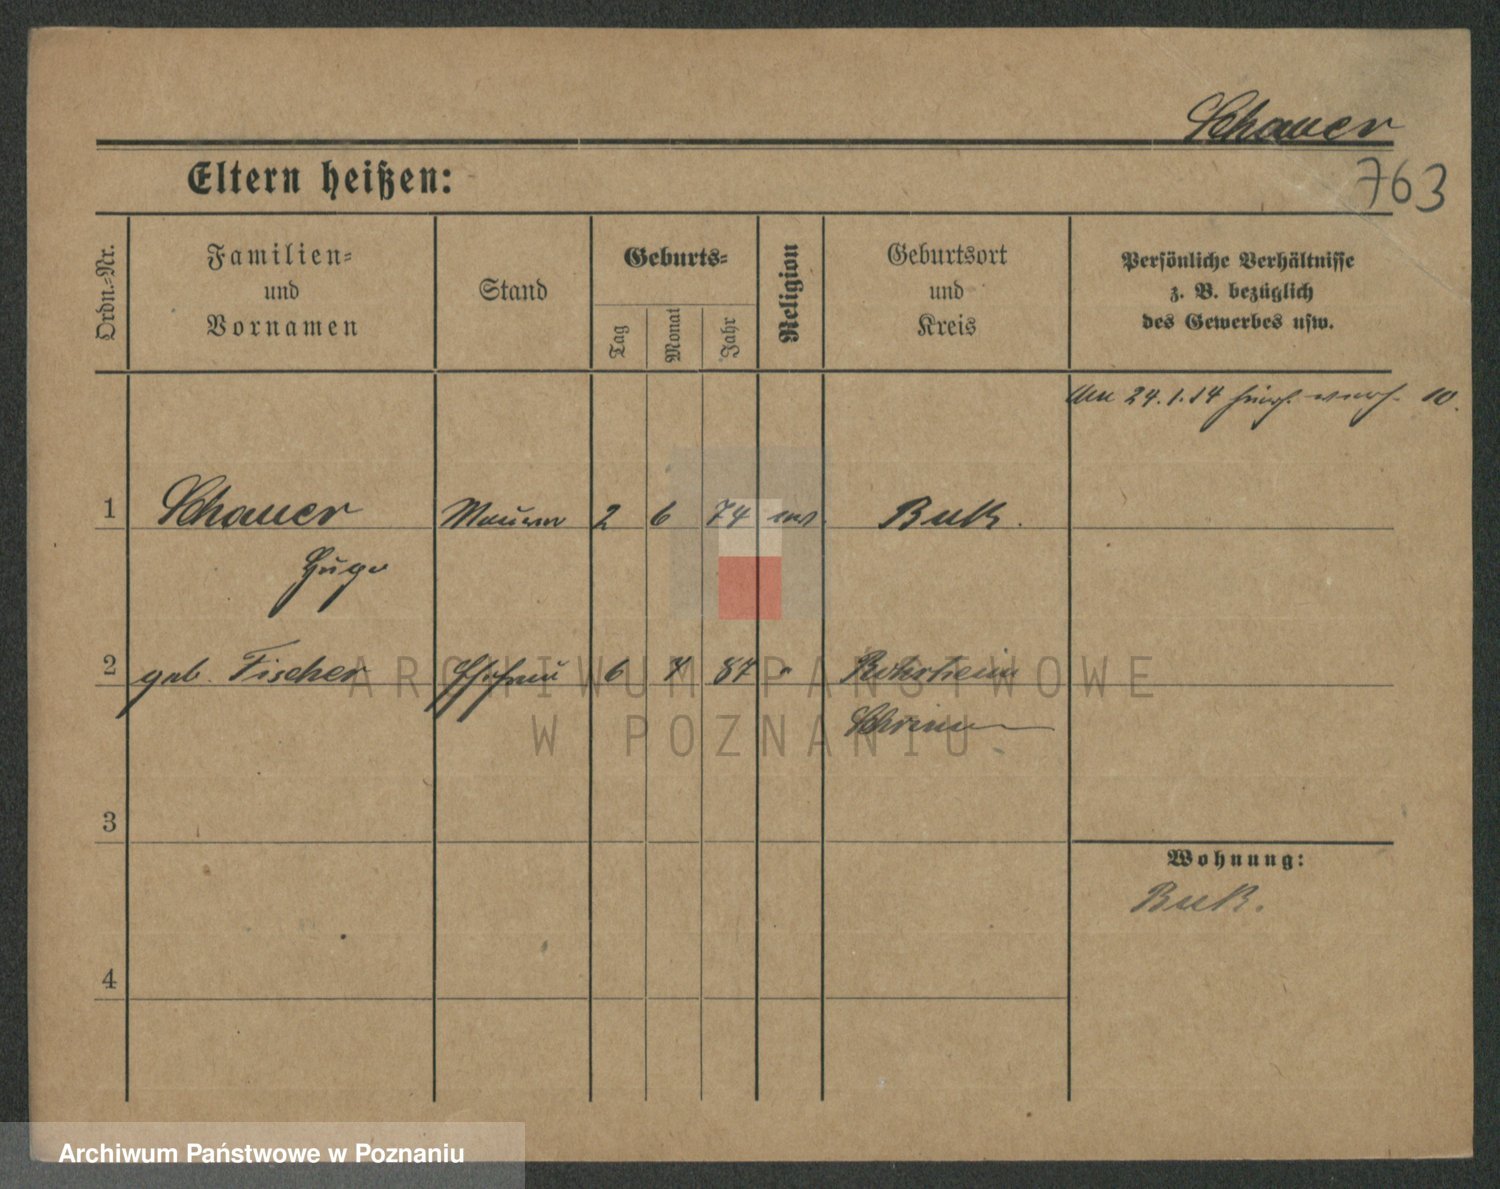 Schauer
763
Eltern heißen:
Ordn.-Nr.
Familien-
und
Vornamen
Stand
Geburts-
Tag
Monat
Jahr
Religion
Geburtsort
und
Kreis
Persönliche Verhältnisse
z. B. bezüglich
des Gewerbes usw.
24.1.14
1 Schauer Maurer 2 6 74 Buk.
Hugo
2 geb. Fischer Ehefrau 6 7 87 "
Schrimm
3
4
Wohnung:
Buk.
ARCHIWUM PAŃSTWOWE
W POZNANIU
Archiwum Państwowe w Poznaniu